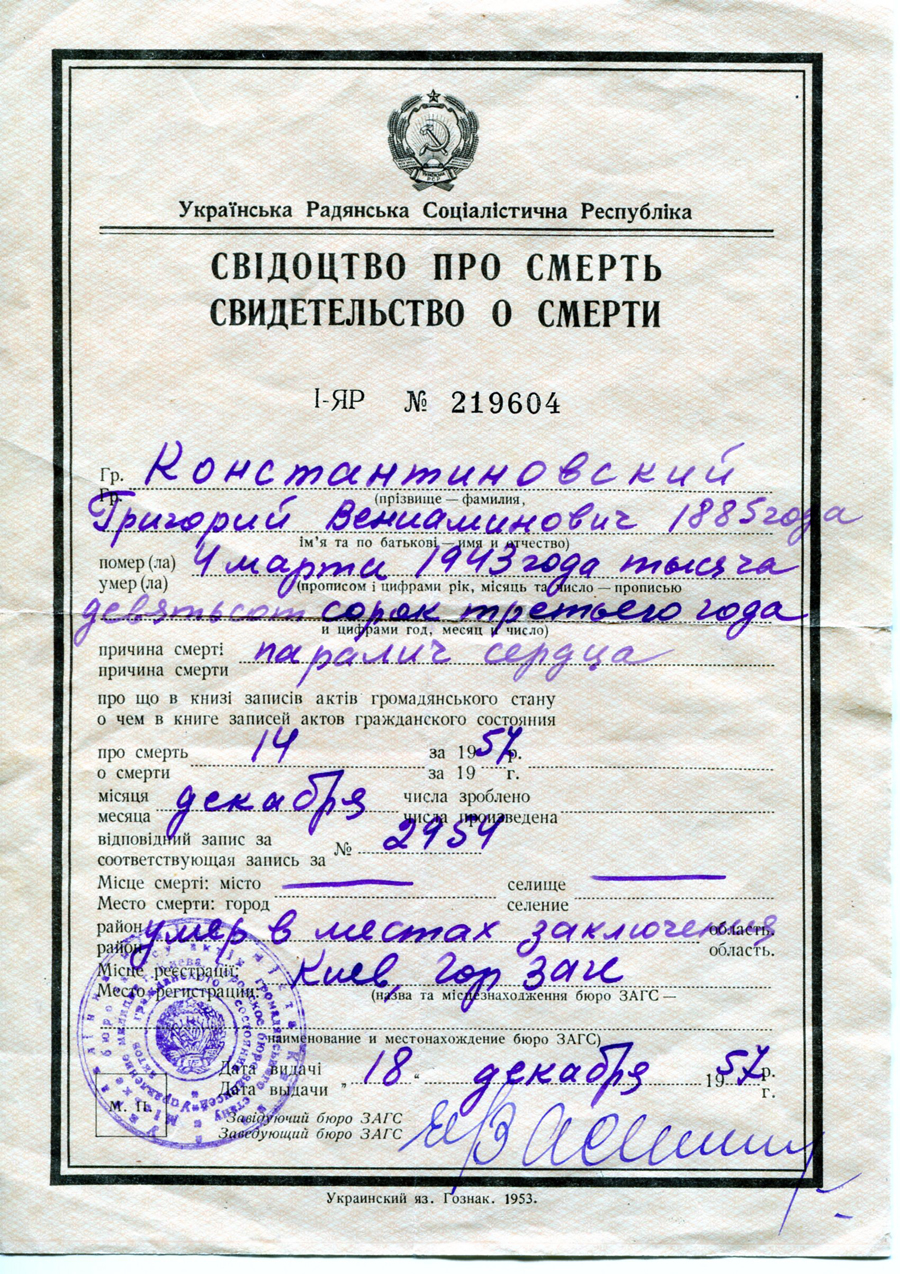 Українська Радянська Соціалістична Республіка
СВІДОЦТВО ПРО СМЕРТЬ
СВИДЕТЕЛЬСТВО О СМЕРТИ
I-ЯР № 219604
Гр. Константиновский
Гр. (прізвище — фамилия,
Григорий Вениаминович 1885 года
ім’я та по батькові — имя и отчество)
помер (ла) 4 марта 1943 года тысяча
умер (ла) (прописом і цифрами рік, місяць та число — прописью
девятьсот сорок третьего года
и цифрами год, месяц и число)
причина смерті паралич сердца
причина смерти
про що в книзі записів актів громадянського стану
о чем в книге записей актов гражданского состояния
про смерть 14 за 1957 р.
о смерти за 19 г.
місяця декабря числа зроблено
месяца числа произведена
відповідний запис за № 2954
соответствующая запись за
Місце смерті: місто — селище —
Место смерти: город селение
район умер в местах заключения область.
район область.
Місце реєстрації: Киев, Гор ЗАГС
Место регистрации: (назва та місцезнаходження бюро ЗАГС —
наименование и местонахождение бюро ЗАГС)
Дата видачі „ 18 “ декабря 1957 р.
Дата выдачи г.
М. П.
Завідуючий бюро ЗАГС
Заведующий бюро ЗАГС
Украинский яз. Гознак. 1953.